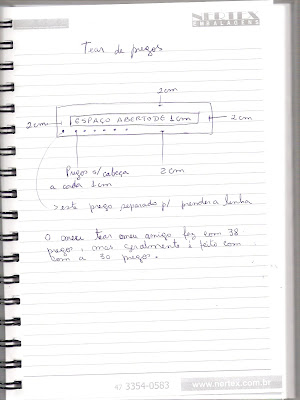 NERTEX
EMBALAGENS
Tear de pregos
1cm
2cm
ESPAÇO ABERTO DE 1cm
2cm
Pregos s/ cabeça
a cada 1cm
2cm
este prego separado p/ prender a linha
O meu tear meu amigo fez com 38
pregos, mas geralmente é feito com
com a 30 pregos.
47 3354-0583
www.nertex.com.br